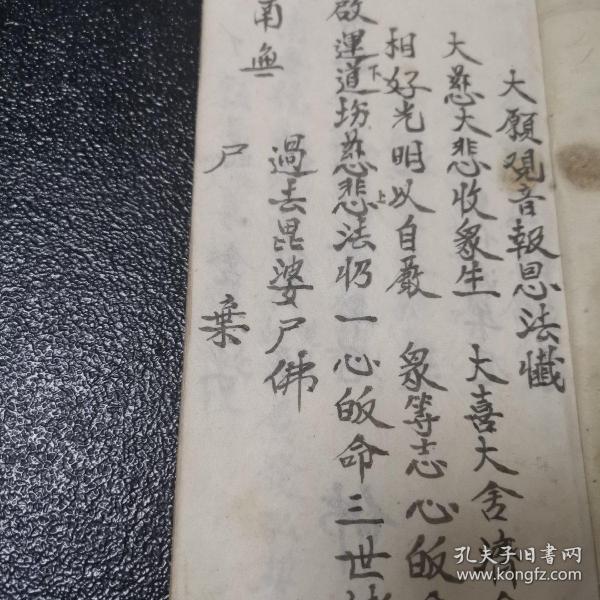 大願观音報恩法懺
大慈大悲收衆生 大喜大舍濟
相好光明以自嚴 衆等志心皈
啟運道下塲慈悲上法 一心皈命三世
過去毘婆尸佛
南無
尸 棄
孔夫子旧书网
www.kongfz.com